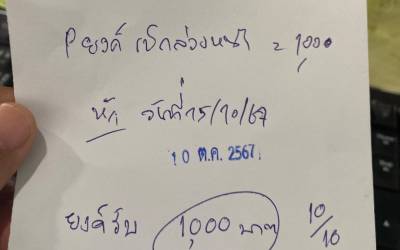 Pยงค์ เบิกล่วงหน้า = 1,000
หัก วันที่ 15/10/67
10 ต.ค. 2567
ยงค์รับ 1,000 บาท 10/10